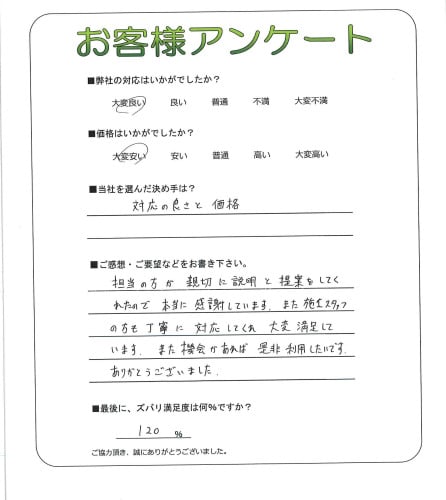 お客様アンケート
■弊社の対応はいかがでしたか?
大変良い 良い 普通 不満 大変不満
■価格はいかがでしたか?
大変安い 安い 普通 高い 大変高い
■当社を選んだ決め手は?
対応の良さと 価格
■ご感想・ご要望などをお書き下さい。
担当の方が 親切に説明と提案をしてく
れたので 本当に感謝しています。また施工スタッフ
の方も丁寧に 対応してくれ 大変満足して
います。また機会があれば 是非利用したいです。
ありがとうございました。
■最後に、ズバリ満足度は何%ですか?
120 %
ご協力頂き、誠にありがとうございました。